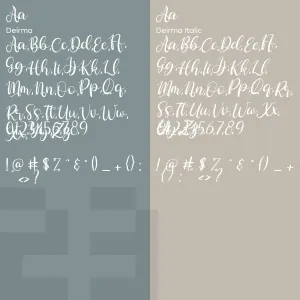 Aa
Deirma
Aa. Bb. Cc. Dd. Ee. Ff.
Gg. Hh. Ii. Jj. Kk. Ll.
Mm. Nn. Oo. Pp. Qq.
Rr. Ss. Tt. Uu. Vv. Ww.
Xx. Yy. Zz.
0,1,2,3,4,5,6,7,8,9
! @ # $ % ^ & * () _ + {} :
<> ?
Aa
Deirma Italic
Aa. Bb. Cc. Dd. Ee. Ff.
Gg. Hh. Ii. Jj. Kk. Ll.
Mm. Nn. Oo. Pp. Qq.
Rr. Ss. Tt. Uu. Vv. Ww. Xx.
0,1,2,3,4,5,6,7,8,9
! @ # $ % ^ & * () _ + {} :
<> ?